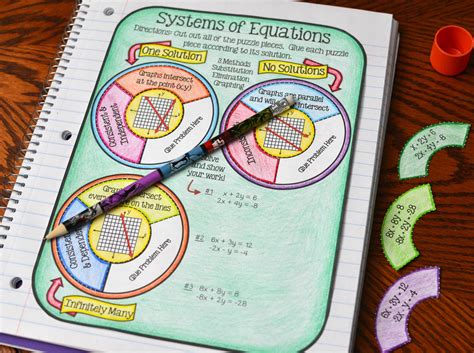 Systems of Equations
Directions: Cut out all of the puzzle pieces. Glue each puzzle
piece according to its solution.
One Solution
3 Methods
Substitution
Elimination
Graphing
No Solutions
Graphs intersect
at the point (x,y)
Consistent &
Independent
Glue Problem Here
Graphs are parallel
and will intersect
Glue Problem Here
and show
your work!
#1 x + 2y = 6
2x + 4y = -8
Graphs intersect
on the lines
Consistent
& Dependent
Glue Problem Here
Infinitely Many
#2 6x + 3y = 12
-2x - y = -4
#3 8x + 8y = 8
-8x + 2y = -28
x + 2y = 6
8x + 8y = 8
6x + 3y = 12